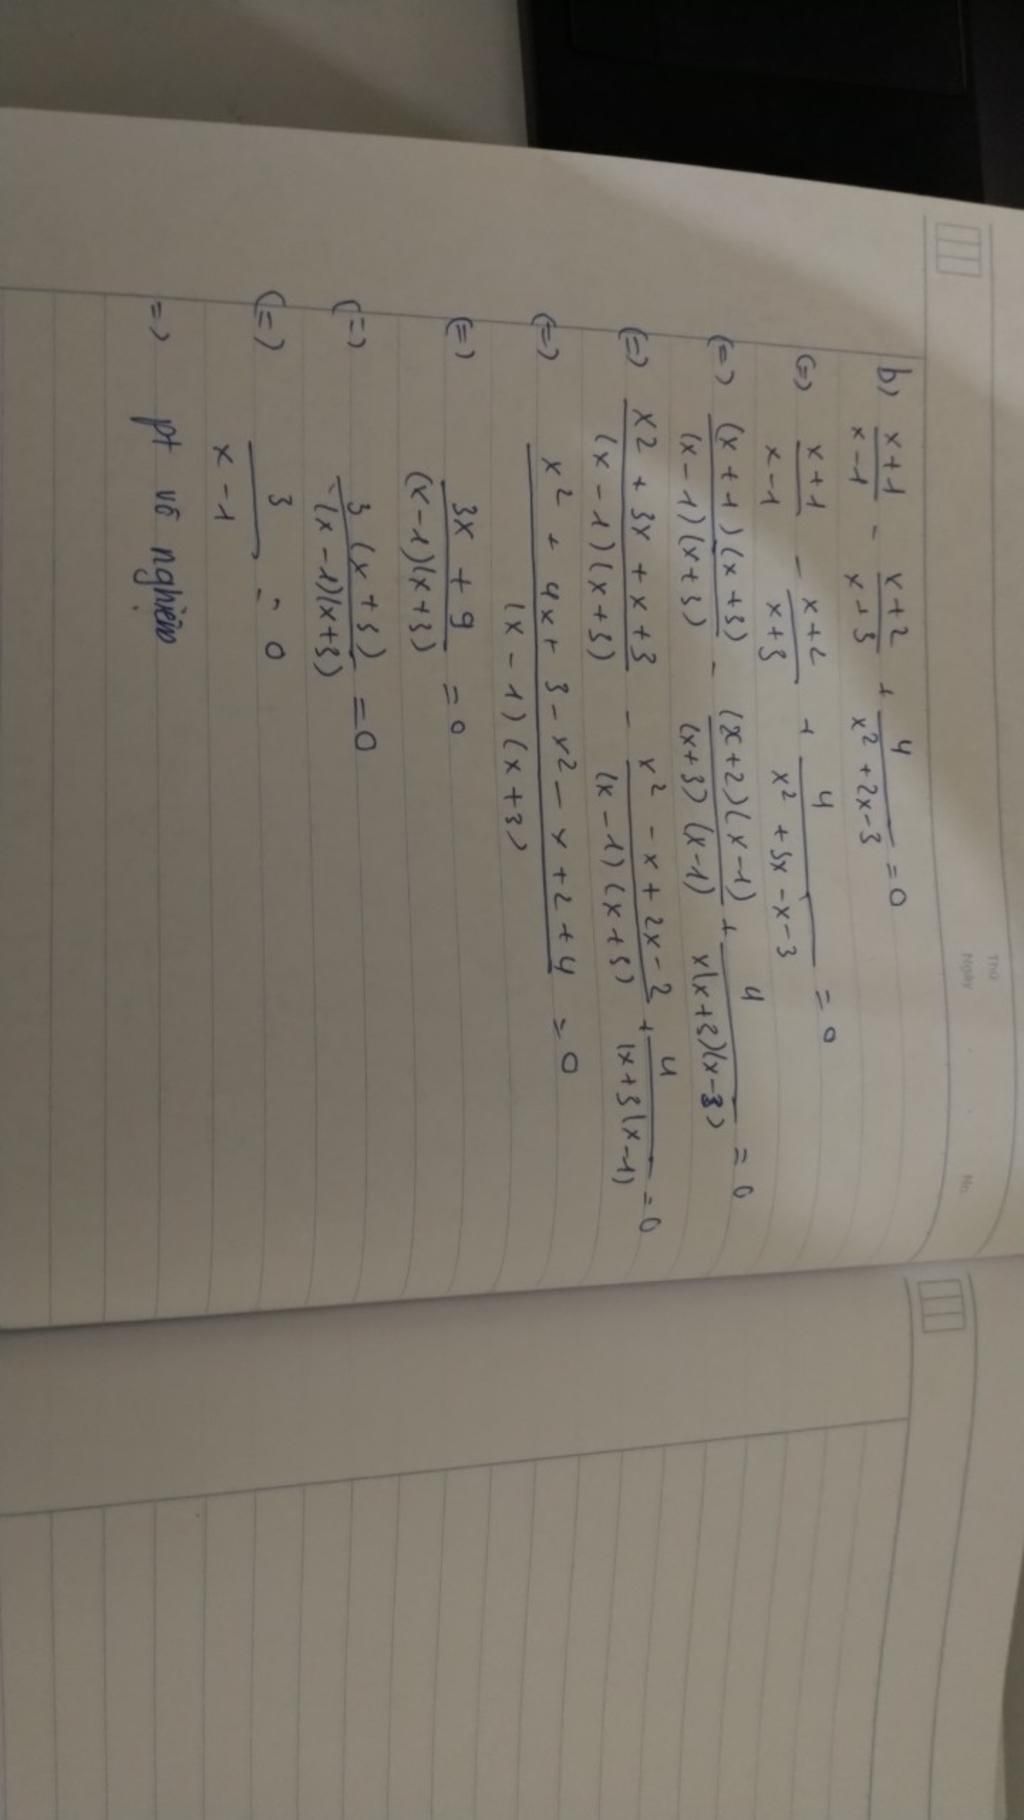 Thứ
Ngày . . No.
b) \frac{x+1}{x-1} - \frac{x+2}{x+3} + \frac{4}{x^2+2x-3} = 0
(=) \frac{x+1}{x-1} - \frac{x+2}{x+3} + \frac{4}{x^2+3x-x-3} = 0
(=) \frac{(x+1)(x+3)}{(x-1)(x+3)} - \frac{(x+2)(x-1)}{(x+3)(x-1)} + \frac{4}{x(x+3)(x-3)} = 0
(=) \frac{x2+3x+x+3}{(x-1)(x+3)} - \frac{x^2-x+2x-2}{(x-1)(x+3)} + \frac{4}{(x+3(x-1)} = 0
(=) \frac{x^2+4x+3-x^2-x+2+4}{(x-1)(x+3)} = 0
(=) \frac{3x+9}{(x-1)(x+3)} = 0
(=) \frac{3(x+3)}{(x-1)(x+3)} = 0
(=) \frac{3}{x-1} = 0
=) pt vô nghiệm